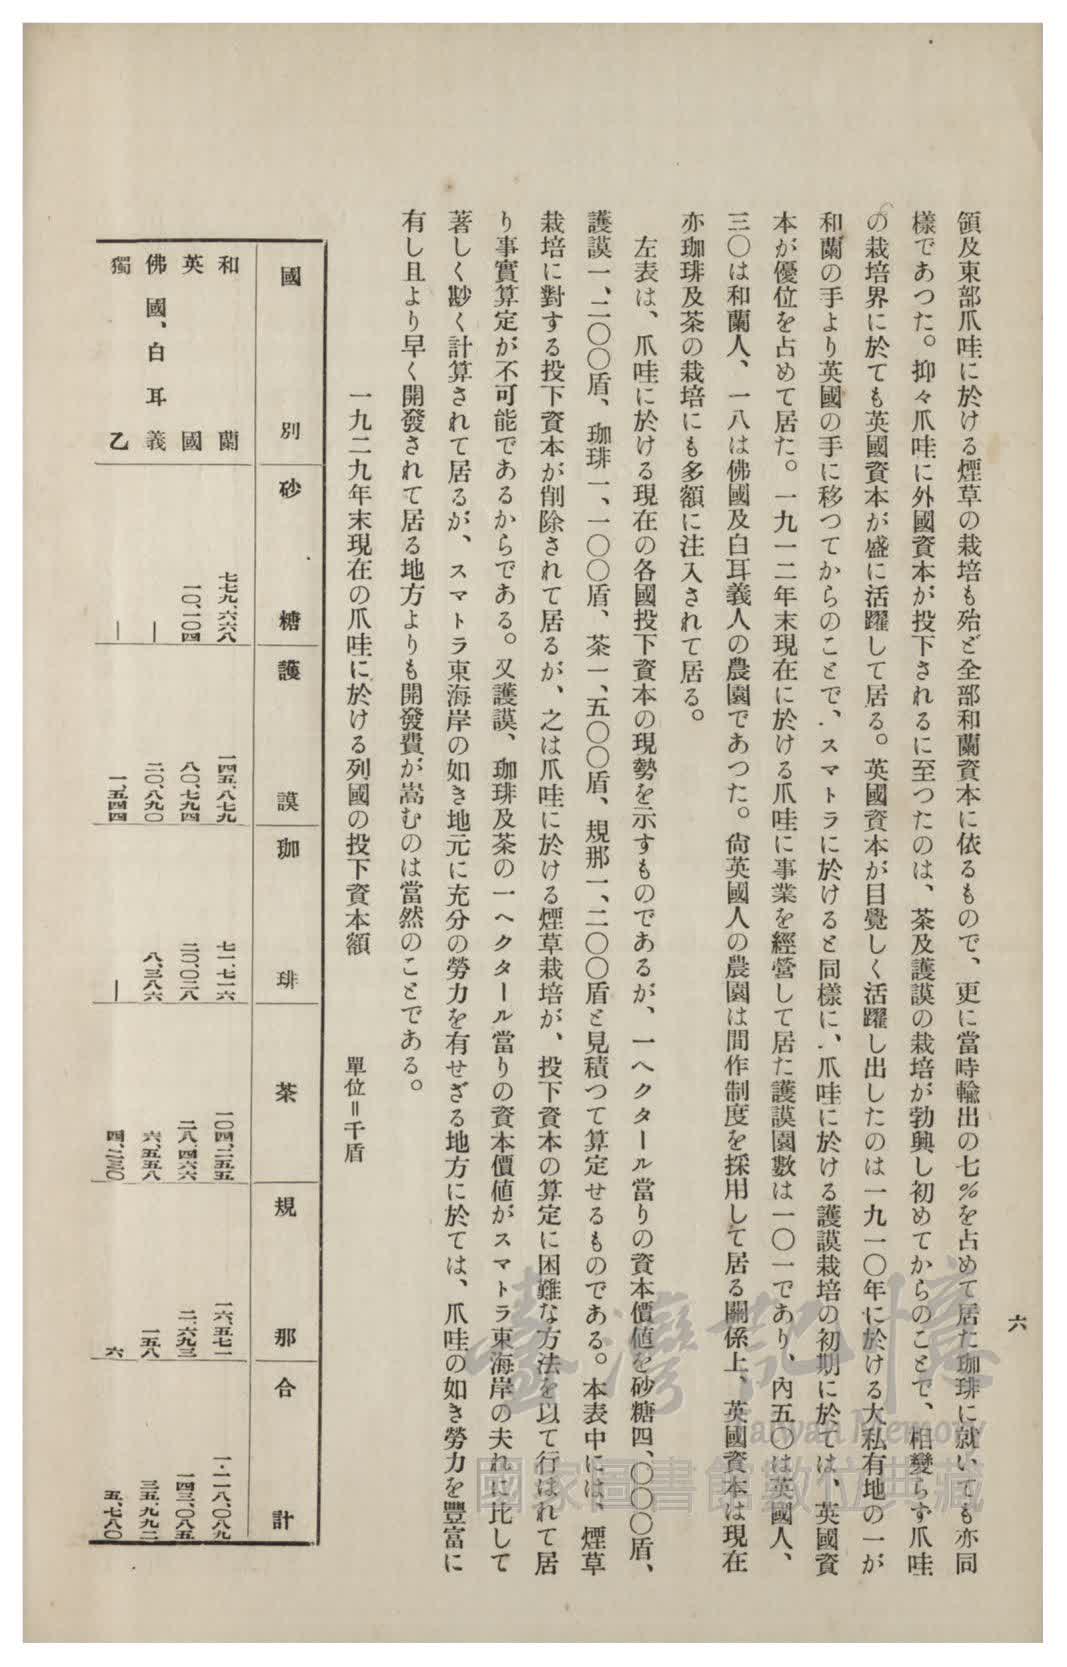 六
領及東部爪哇に於ける煙草の栽培も殆ど全部和蘭資本に依るもので、更に當時輸出の七％を占めて居た珈琲に就いても亦同
樣であつた。抑々爪哇に外國資本が投下されるに至つたのは、茶及護謨の栽培が勃興し初めてからのことで、相變らず爪哇
の栽培界に於ても英國資本が盛に活躍して居る。英國資本が目覺しく活躍し出したのは一九一〇年に於ける大私有地の一が
和蘭の手より英國の手に移つてからのことで、スマトラに於けると同樣に、爪哇に於ける護謨栽培の初期に於ては、英國資
本が優位を占めて居た。一九一二年末現在に於ける爪哇に事業を經營して居た護謨園數は一〇一であり、內五〇は英國人、
三〇は和蘭人、一八は佛國及白耳義人の農園であつた。尙英國人の農園は間作制度を採用して居る關係上、英國資本は現在
亦珈琲及茶の栽培にも多額に注入されて居る。
左表は、爪哇に於ける現在の各國投下資本の現勢を示すものであるが、一ヘクタール當りの資本價値を砂糖四、〇〇〇盾、
護謨一、二〇〇盾、珈琲一、一〇〇盾、茶一、五〇〇盾、規那一、二〇〇盾と見積つて算定せるものである。本表中には、煙草
栽培に對する投下資本が削除されて居るが、之は爪哇に於ける煙草栽培が、投下資本の算定に困難な方法を以て行はれて居
り事實算定が不可能であるからである。又護謨、珈琲及茶の一ヘクタール當りの資本價値がスマトラ東海岸の夫れに比して
著しく尠く計算されて居るが、スマトラ東海岸の如き地元に充分の勞力を有せざる地方に於ては、爪哇の如き勞力を豐富に
有し且より早く開發されて居る地方よりも開發費が嵩むのは當然のことである。
一九二九年末現在の爪哇に於ける列國の投下資本額　單位＝千盾
國別　砂糖　護謨　珈琲　茶　規那　合計
和蘭　七七九、六六八　一四五、八七九　七一、七一六　一〇四、二五五　一六、五七一　一、一一八、〇八九
英國　一〇、一〇四　八〇、七九四　二〇、〇二八　二八、四六六　二、六九三　一四三、〇八五
佛國、白耳義　―　二〇、八九〇　八、三八六　六、五五八　一五八　三五、九九二
獨乙　―　一、五四四　―　四、二三〇　六　五、七八〇
臺灣記憶
Taiwan Memory
國家圖書館數位典藏